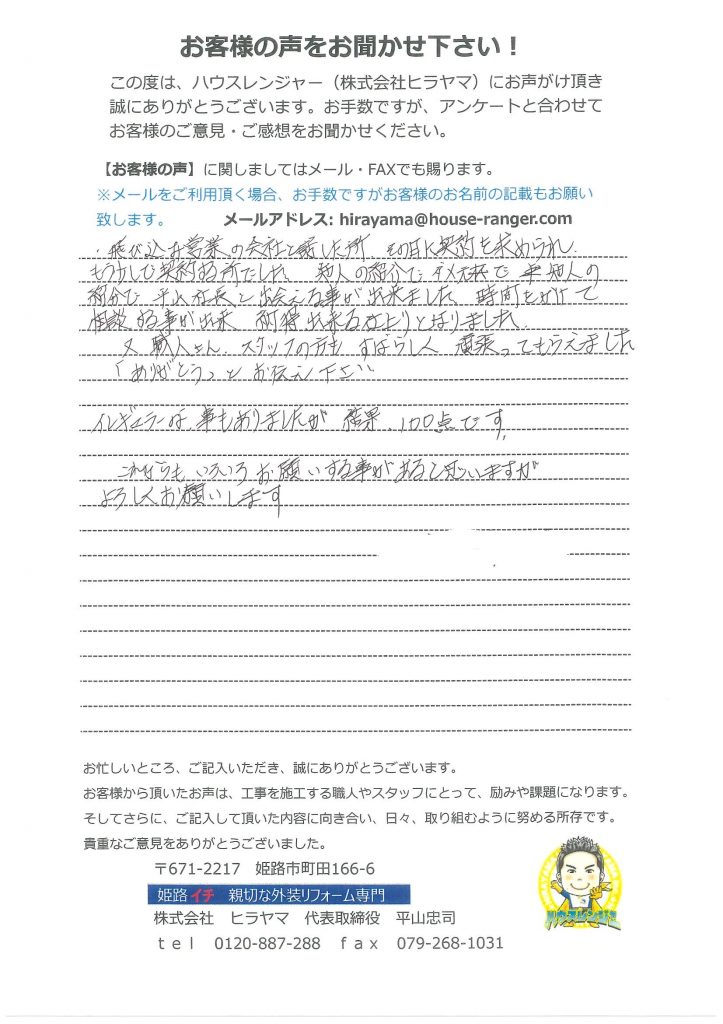 お客様の声をお聞かせ下さい！
この度は、ハウスレンジャー（株式会社ヒラヤマ）にお声がけ頂き
誠にありがとうございます。お手数ですが、アンケートと合わせて
お客様のご意見・ご感想をお聞かせください。
【お客様の声】に関しましてはメール・FAXでも賜ります。
※メールをご利用頂く場合、お手数ですがお客様のお名前の記載もお願い
致します。 メールアドレス: hirayama@house-ranger.com
・飛び込み営業の会社と話した所 その日に契約を求められ
もう少しで契約する所でした。 知人の紹介で 知人の
紹介で 平山社長と出会える事が出来ました 時間をかけて
相談する事が出来 納得出来る仕上りとなりました
又 職人さん、スタッフの方も すばらしく 頑張ってもらえました
「ありがとう」とお伝え下さい
イレギュラーな事もありましたが 結果 100点です
これからもいろいろお願いする事があると思いますが
よろしくお願いします
お忙しいところ、ご記入いただき、誠にありがとうございます。
お客様から頂いたお声は、工事を施工する職人やスタッフにとって、励みや課題になります。
そしてさらに、ご記入して頂いた内容に向き合い、日々、取り組むように努める所存です。
貴重なご意見をありがとうございました。
〒671-2217 姫路市町田166-6
姫路イチ 親切な外装リフォーム専門
株式会社 ヒラヤマ 代表取締役 平山忠司
ｔｅｌ 0120-887-288 ｆａｘ 079-268-1031
ハウスレンジャー